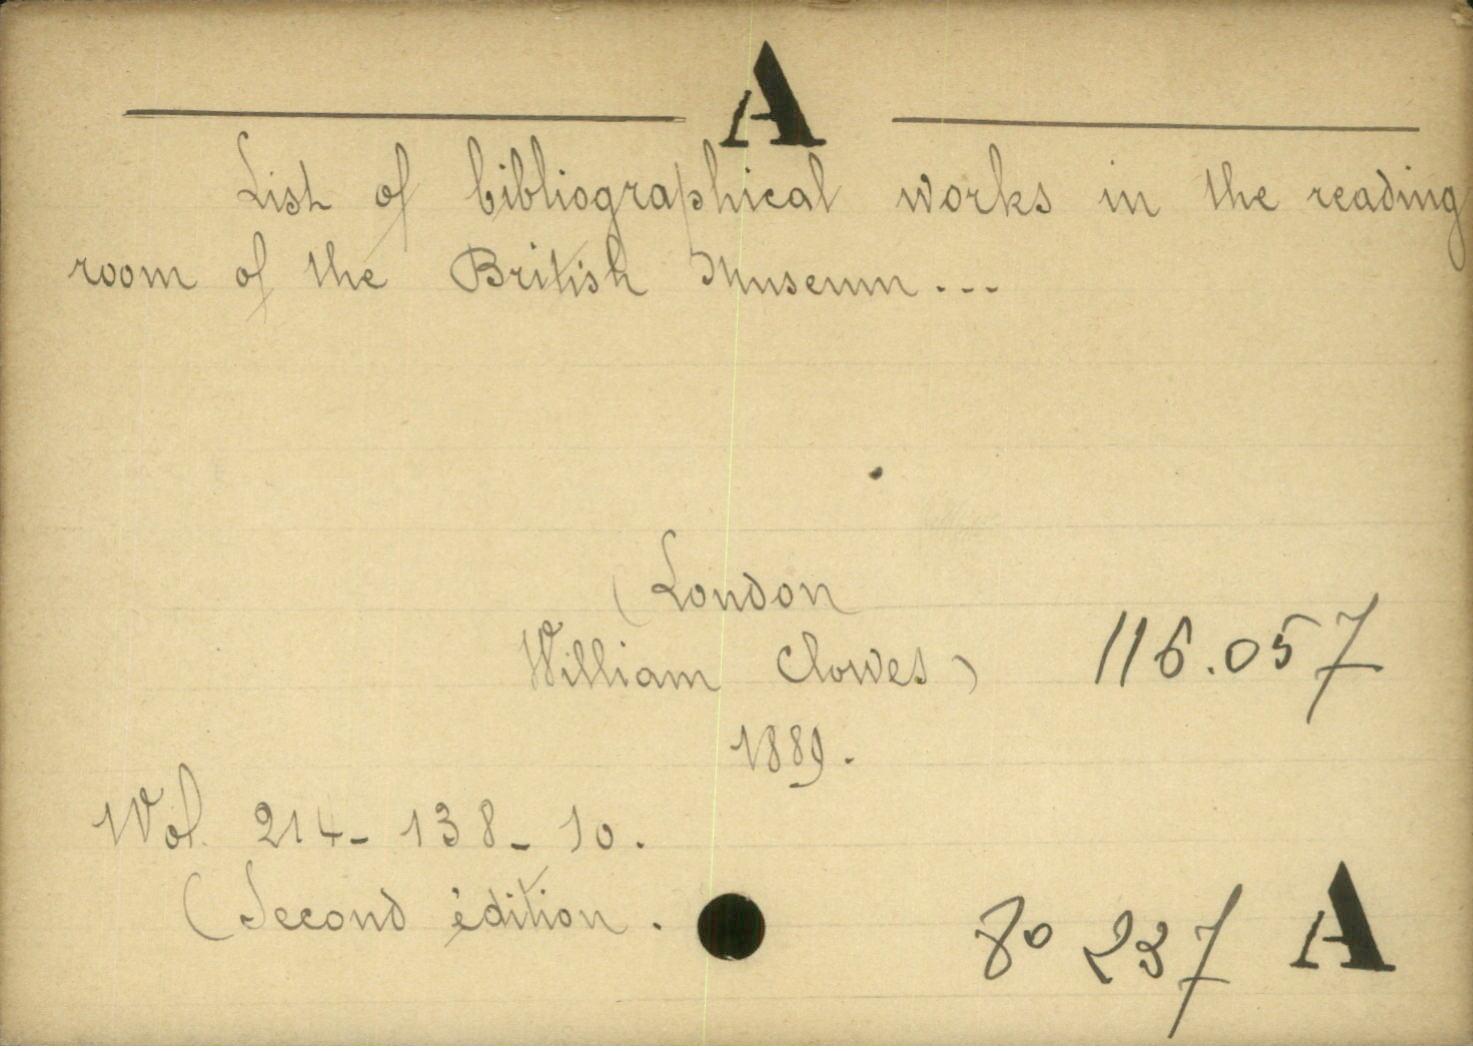 A
List of bibliographical works in the reading
room of the British Museum...
(London
William Clowes)
116.057
1889.
Vol. 214-138-10.
(Second édition.
8° 237 A